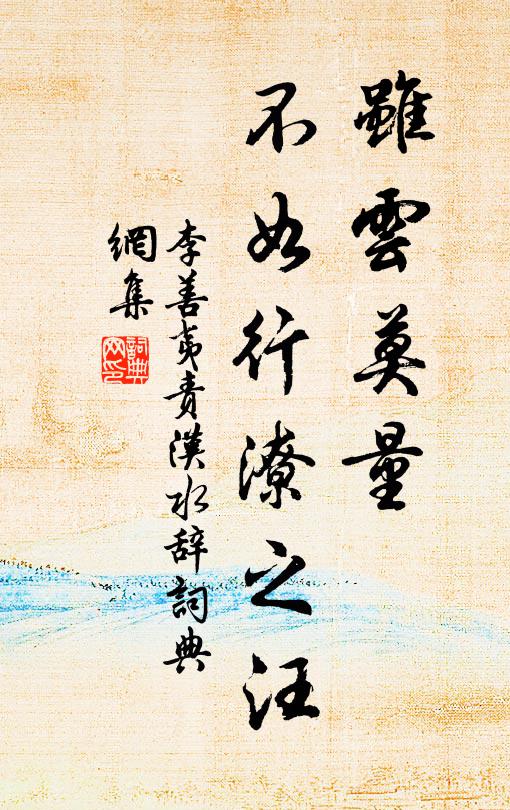 雖雲莫量
不如行潦之汪
李善夷責漢水辞詞典
網集
詞典
网印